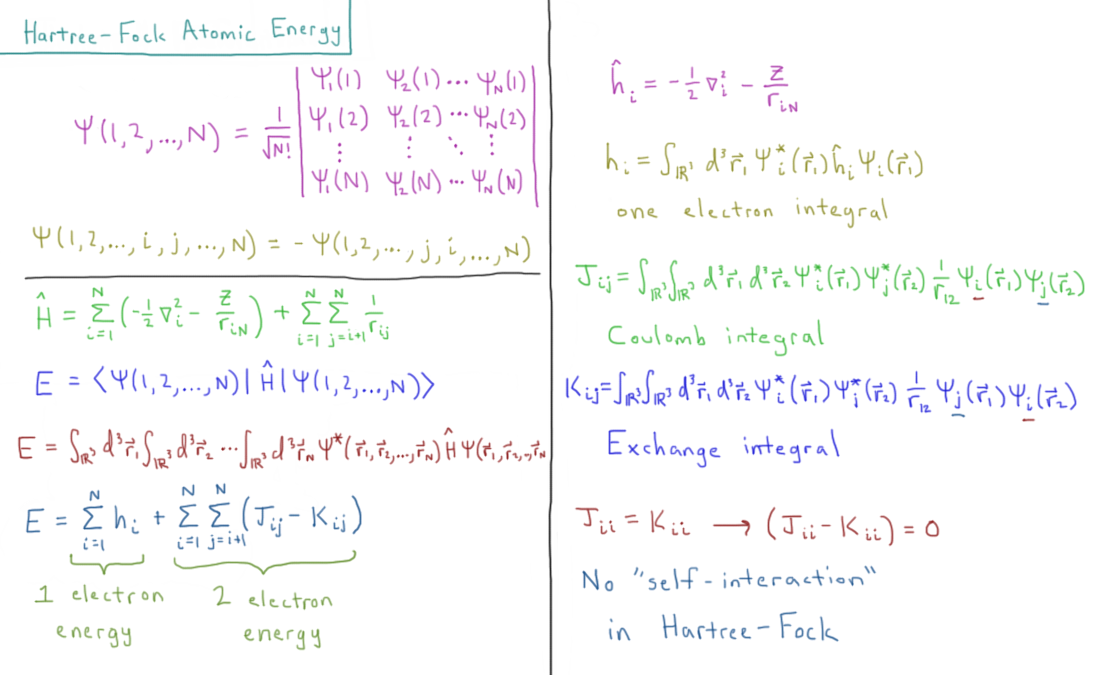 Hartree-Fock Atomic Energy
Ψ(1,2,...,N) = 1/√N! | Ψ₁(1) Ψ₂(1) ⋯ Ψ_N(1) |
| Ψ₁(2) Ψ₂(2) ⋯ Ψ_N(2) |
| ⋮ ⋮ ⋱ ⋮ |
| Ψ₁(N) Ψ₂(N) ⋯ Ψ_N(N) |
Ψ(1,2,...,i,j,...,N) = - Ψ(1,2,...,j,i,...,N)
Ĥ = Σ_{i=1}^{N} (-½ ∇ᵢ² - Z/r_{iN}) + Σ_{i=1}^{N} Σ_{j=i+1}^{N} 1/r_{ij}
E = ⟨Ψ(1,2,...,N)| Ĥ |Ψ(1,2,...,N)⟩
E = ∫_{ℝ³} d³r⃗₁ ∫_{ℝ³} d³r⃗₂ ⋯ ∫_{ℝ³} d³r⃗_N Ψ*(r⃗₁,r⃗₂,...,r⃗_N) Ĥ Ψ(r⃗₁,r⃗₂,..,r⃗_N
E = Σ_{i=1}^{N} hᵢ + Σ_{i=1}^{N} Σ_{j=i+1}^{N} (J_{ij} - K_{ij})
1 electron energy
2 electron energy
ĥᵢ = -½ ∇ᵢ² - Z/r_{iN}
hᵢ = ∫_{ℝ³} d³r⃗₁ Ψᵢ*(r⃗₁) ĥᵢ Ψᵢ(r⃗₁)
one electron integral
J_{ij} = ∫_{ℝ³} ∫_{ℝ³} d³r⃗₁ d³r⃗₂ Ψᵢ*(r⃗₁) Ψⱼ*(r⃗₂) 1/r₁₂ Ψᵢ(r⃗₁) Ψⱼ(r⃗₂)
Coulomb integral
K_{ij} = ∫_{ℝ³} ∫_{ℝ³} d³r⃗₁ d³r⃗₂ Ψᵢ*(r⃗₁) Ψⱼ*(r⃗₂) 1/r₁₂ Ψⱼ(r⃗₁) Ψᵢ(r⃗₂)
Exchange integral
J_{ii} = K_{ii} → (J_{ii} - K_{ii}) = 0
No "self-interaction"
in Hartree-Fock